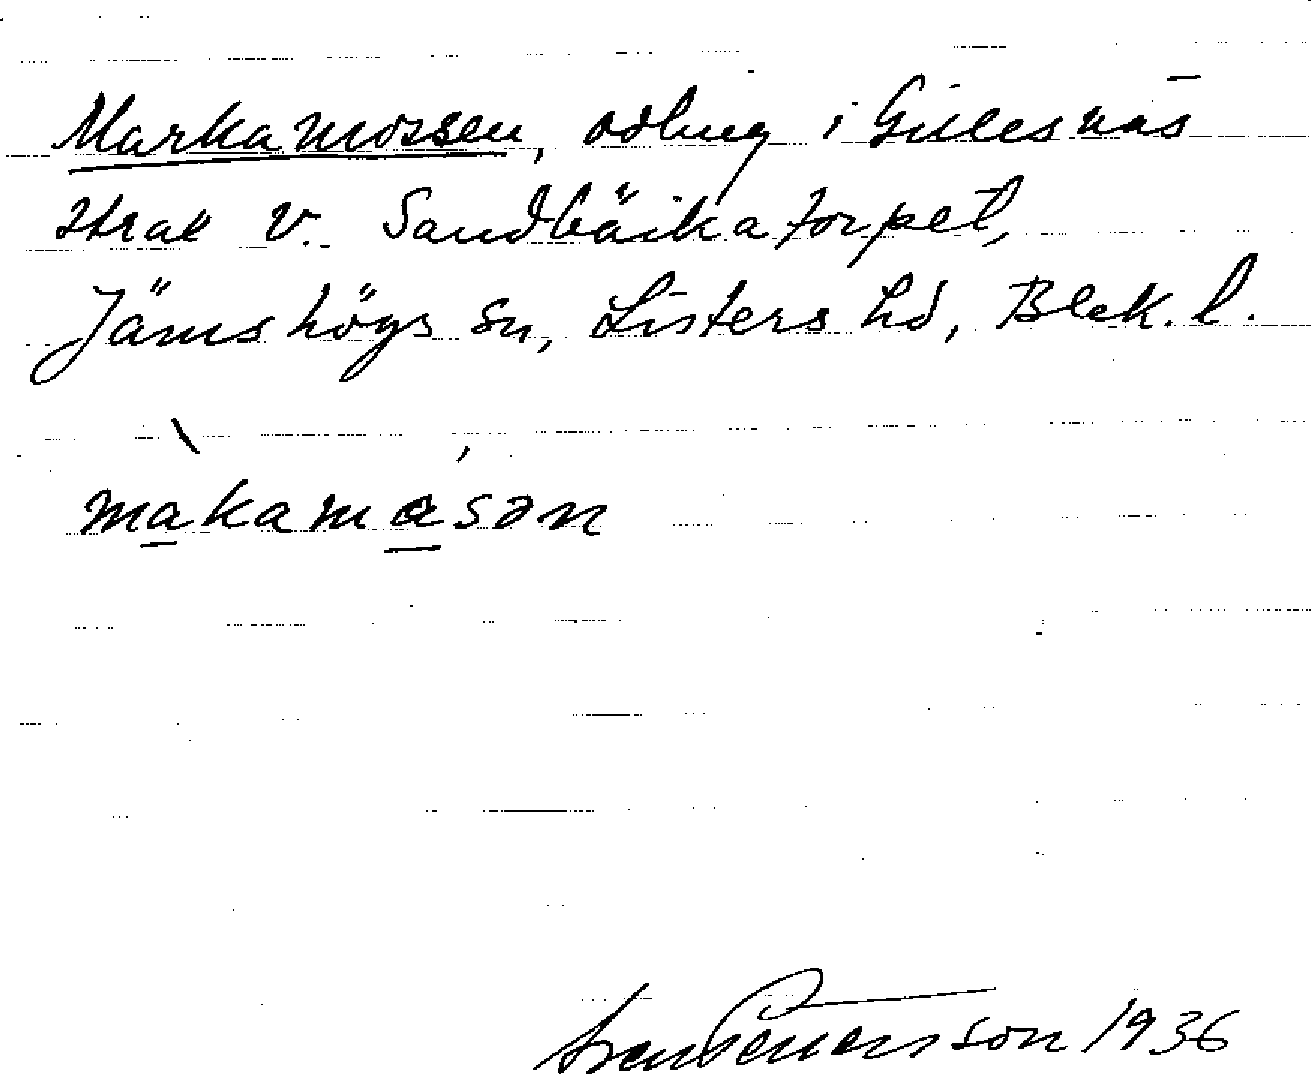 Markamossen, odling i Gillesnäs
strax v. Sandbäckatorpet,
Jämshögs sn, Listers hd, Blek. l.
makamåsən
Sven Benson 1936